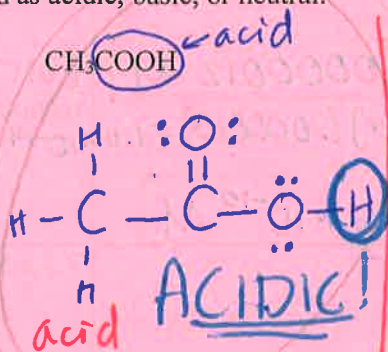 as acidic, basic, or neutral.
acid
CH₃COOH
H :O:
||
H – C – C – O – H
H
ACIDIC!
acid